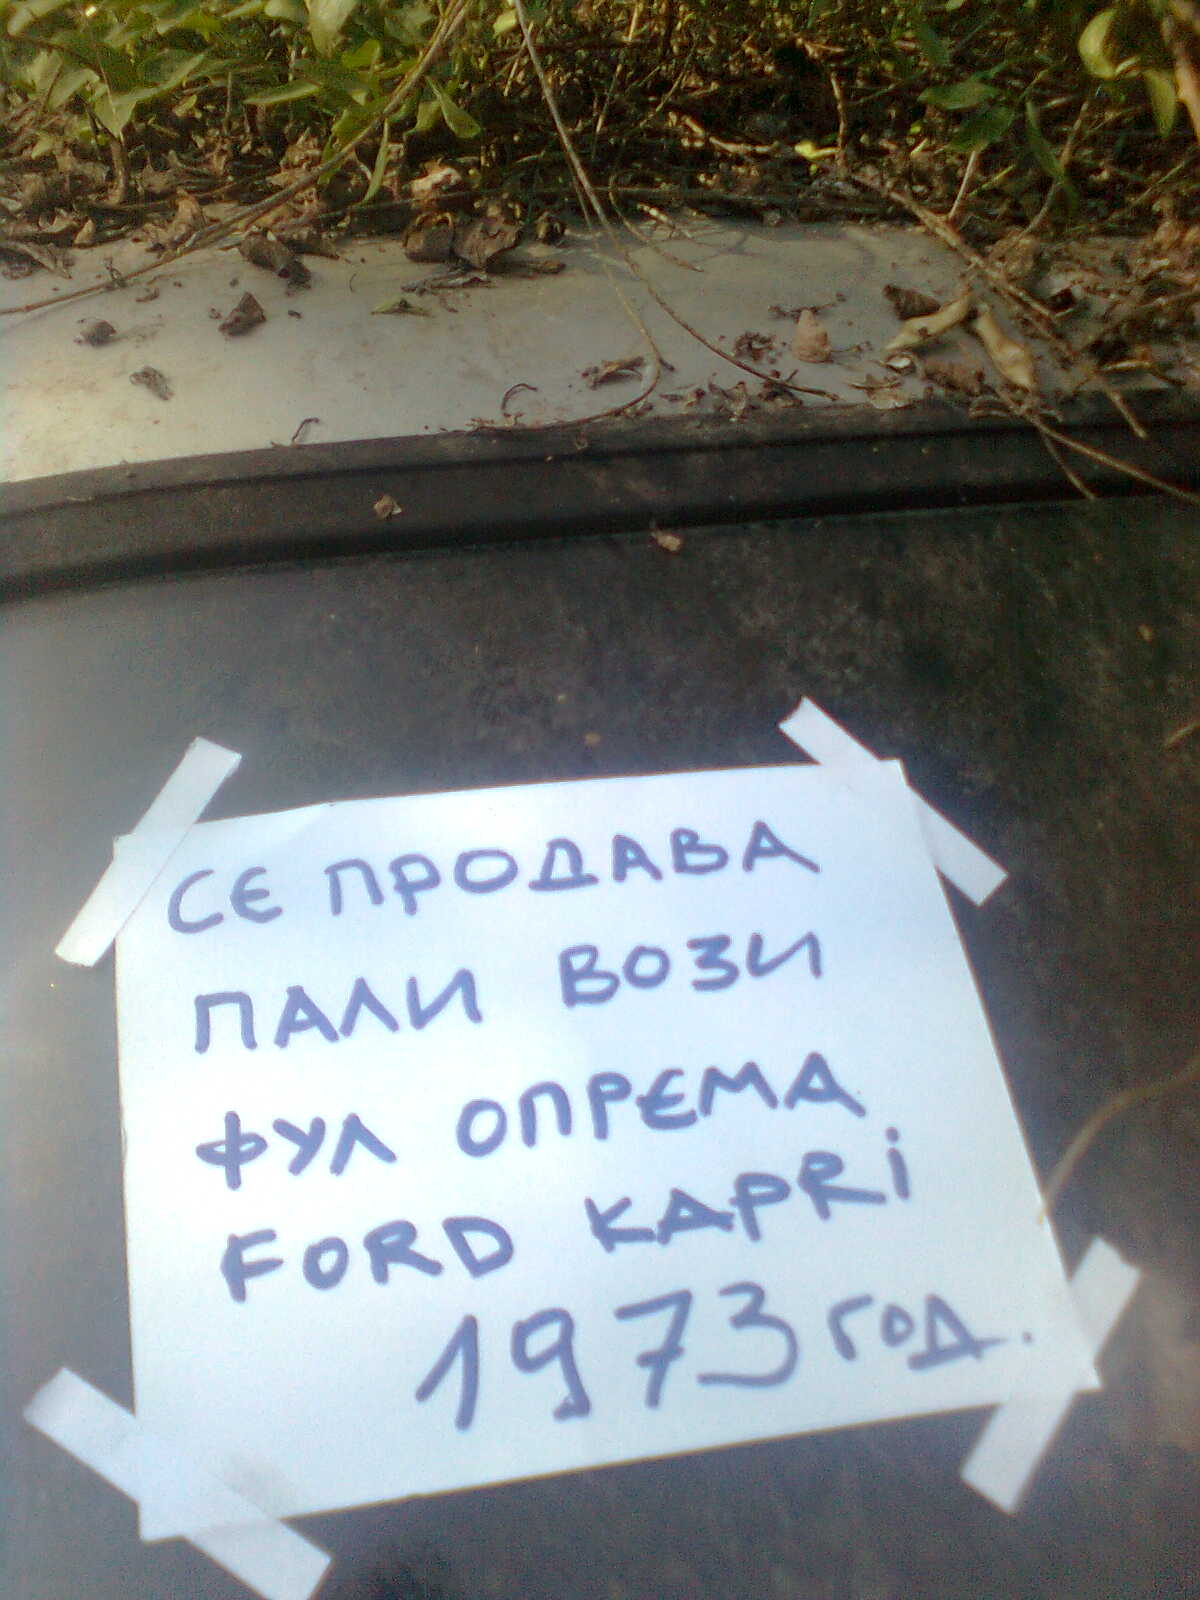 СЕ ПРОДАВА
ПАЛИ ВОЗИ
ФУЛ ОПРЕМА
FORD KAPRi
1973 год.